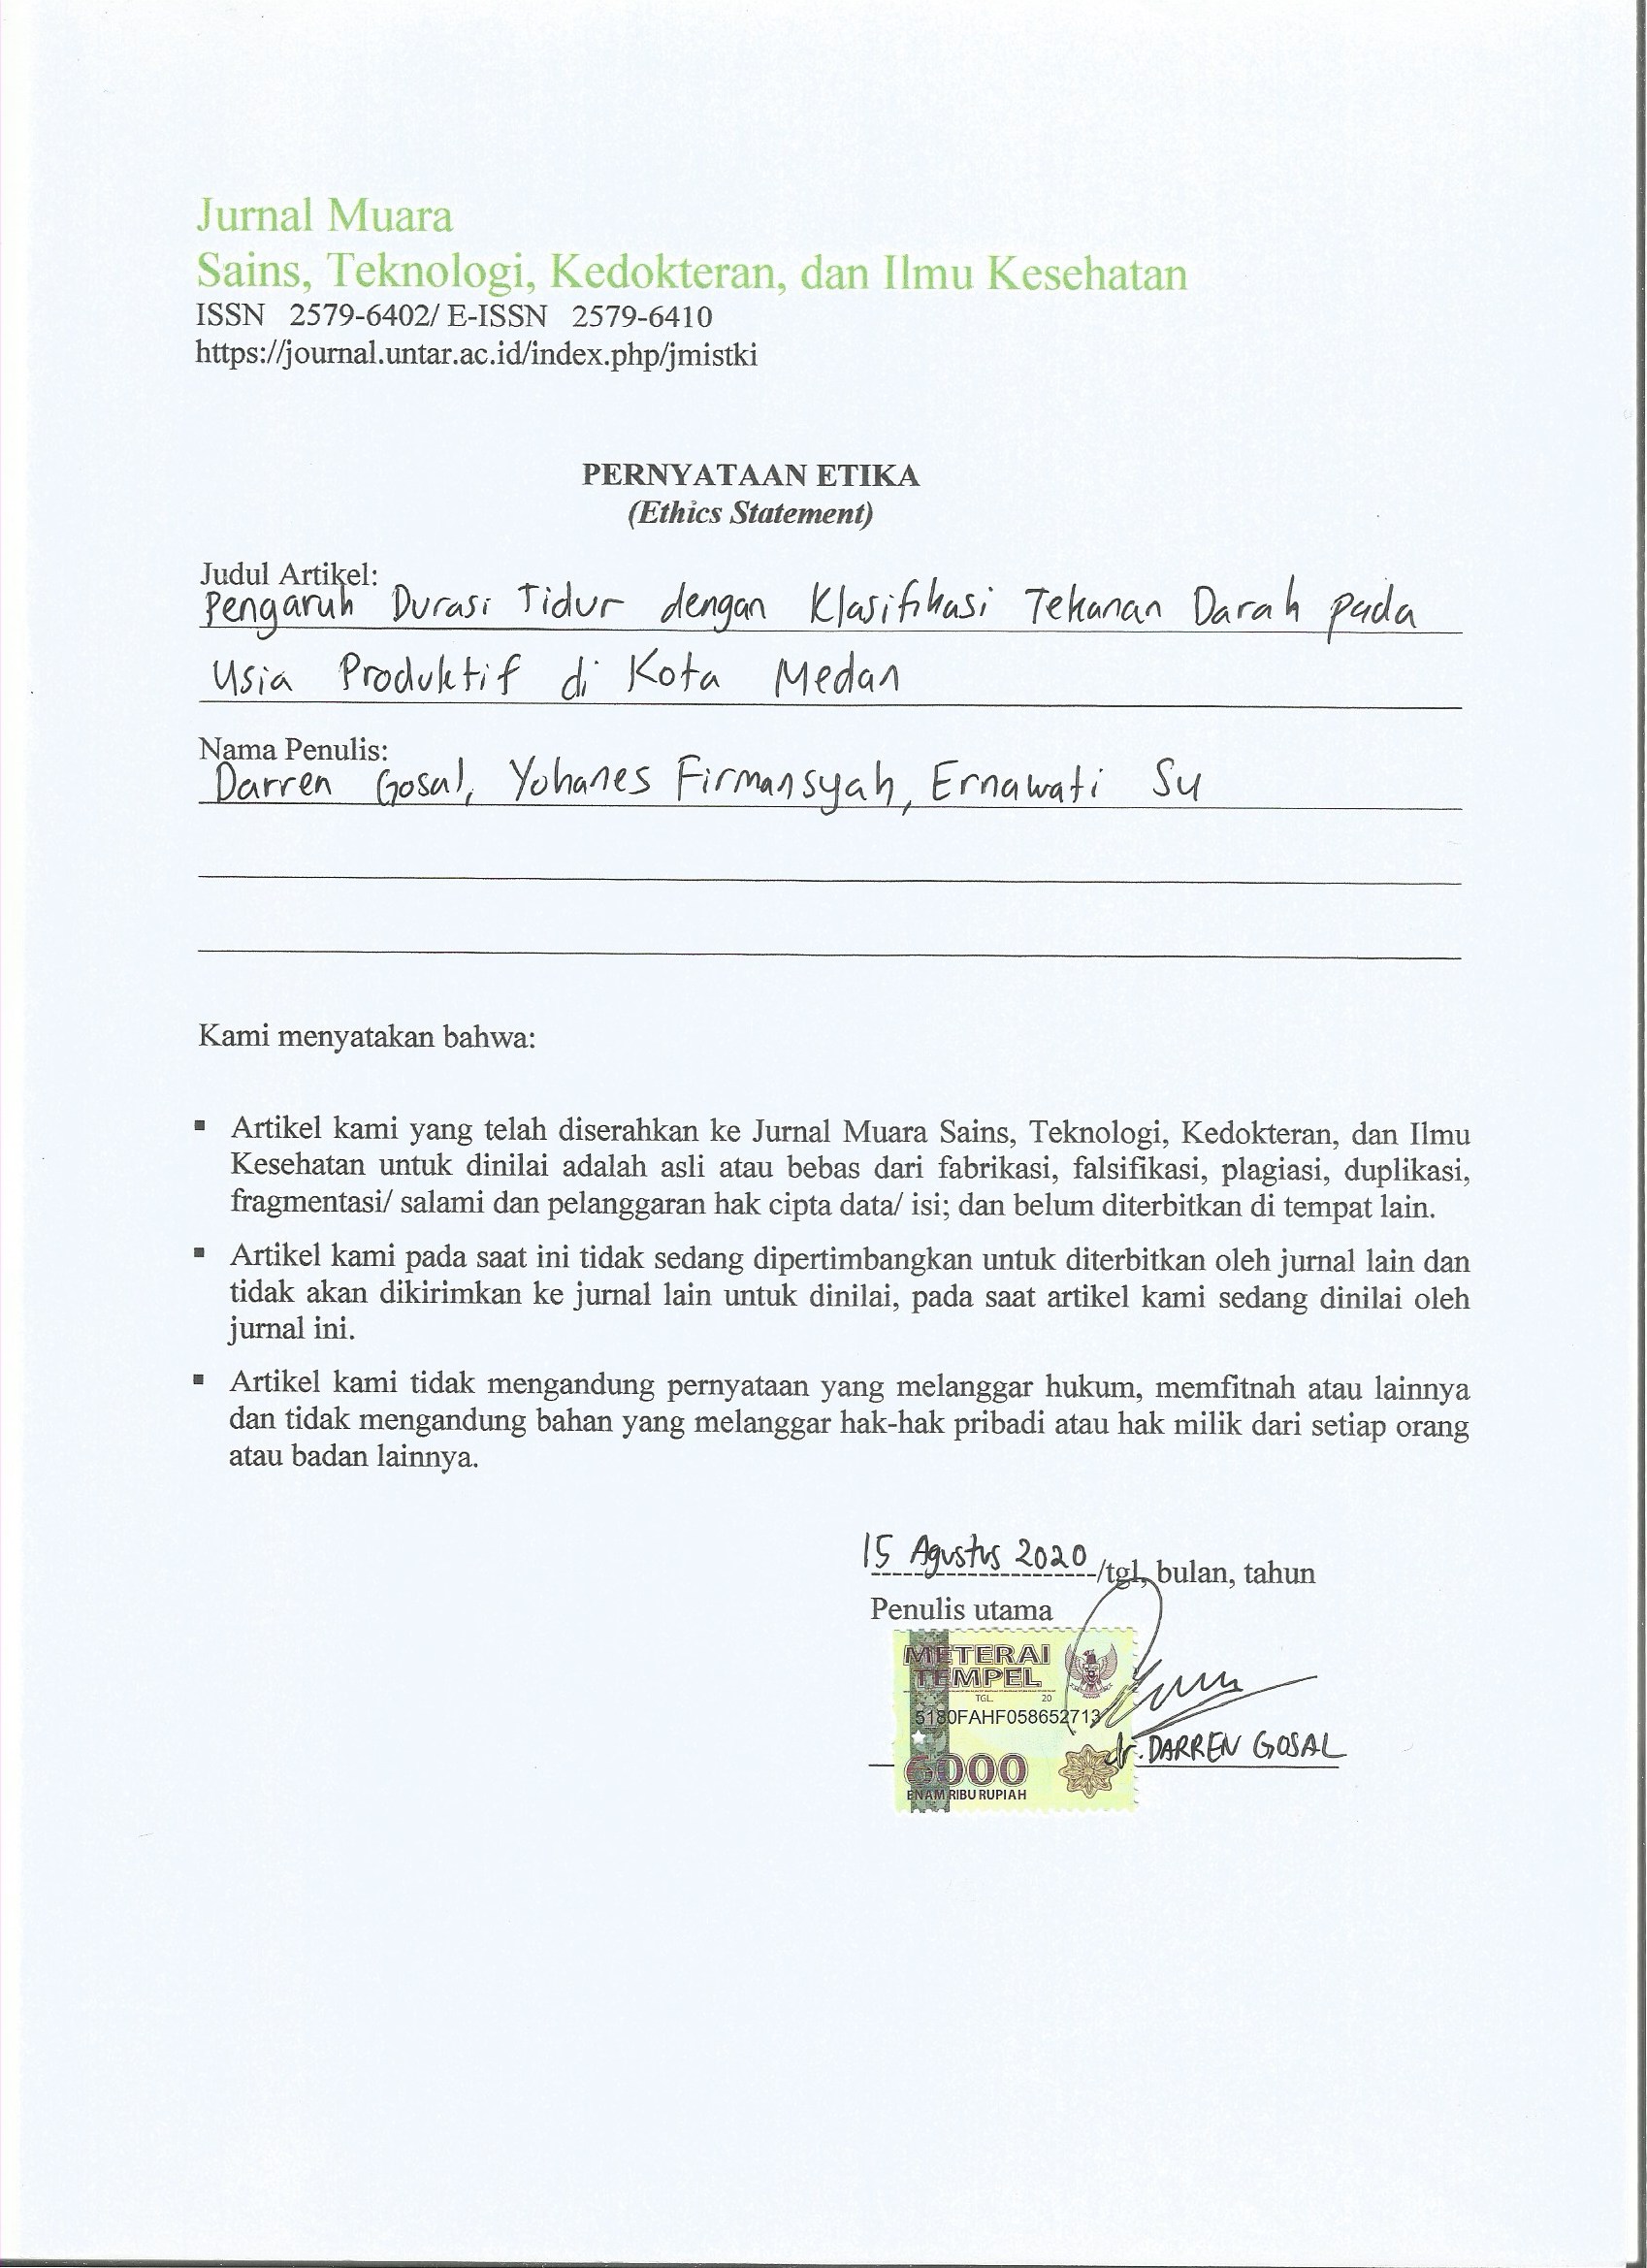 Jurnal Muara
Sains, Teknologi, Kedokteran, dan Ilmu Kesehatan
ISSN 2579-6402/ E-ISSN 2579-6410
https://journal.untar.ac.id/index.php/jmistki
PERNYATAAN ETIKA
(Ethics Statement)
Judul Artikel:
Pengaruh Durasi Tidur dengan Klasifikasi Tekanan Darah pada
Usia Produktif di Kota Medan
Nama Penulis:
Darren Gosal, Yohanes Firmansyah, Ernawati Su
Kami menyatakan bahwa:
▪ Artikel kami yang telah diserahkan ke Jurnal Muara Sains, Teknologi, Kedokteran, dan Ilmu
Kesehatan untuk dinilai adalah asli atau bebas dari fabrikasi, falsifikasi, plagiasi, duplikasi,
fragmentasi/ salami dan pelanggaran hak cipta data/ isi; dan belum diterbitkan di tempat lain.
▪ Artikel kami pada saat ini tidak sedang dipertimbangkan untuk diterbitkan oleh jurnal lain dan
tidak akan dikirimkan ke jurnal lain untuk dinilai, pada saat artikel kami sedang dinilai oleh
jurnal ini.
▪ Artikel kami tidak mengandung pernyataan yang melanggar hukum, memfitnah atau lainnya
dan tidak mengandung bahan yang melanggar hak-hak pribadi atau hak milik dari setiap orang
atau badan lainnya.
15 Agustus 2020 /tgl, bulan, tahun
Penulis utama
METERAI
TEMPEL
TGL. 20
5180FAHF058652713
dr. DARREN GOSAL
6000
ENAM RIBU RUPIAH